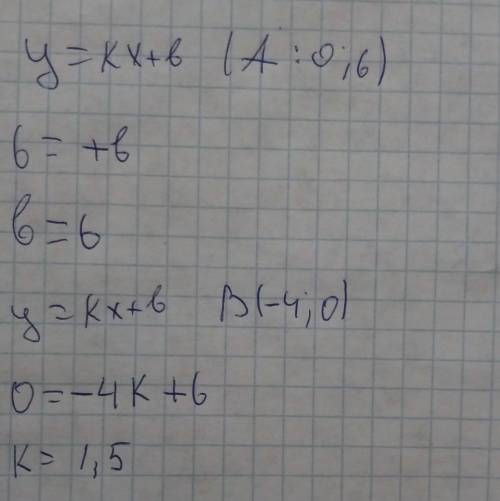 y = kx+в (A : 0 ; 6)
6 = +в
в = 6
y = kx+в B(-4 ; 0)
0 = -4k + 6
k = 1,5